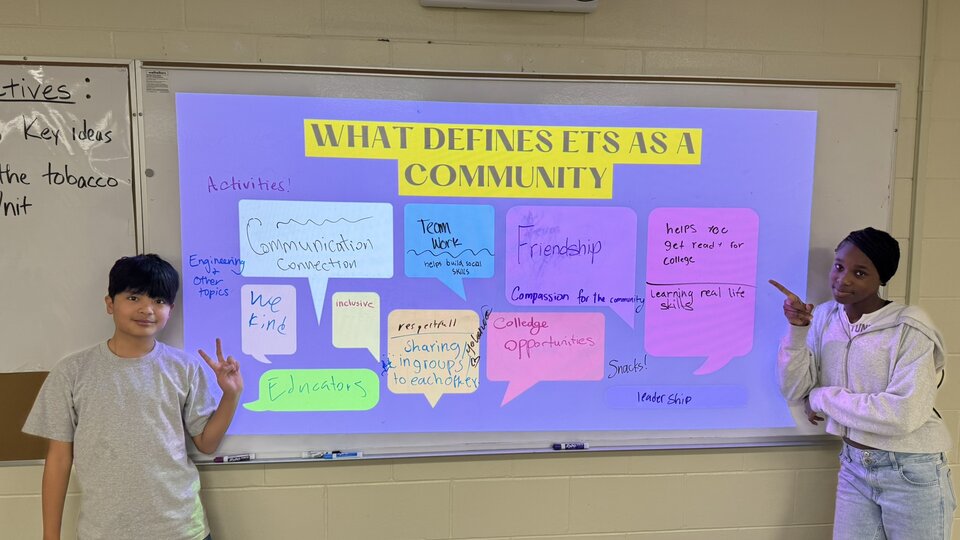 ctives:
Key ideas
the tobacco
nit
WHAT DEFINES ETS AS A
COMMUNITY
Activities!
Communication
Connection
Team
Work
helps build social
skills
Friendship
Compassion for the community
helps you
get ready for
college
Learning real life
skills
Engineering
+
Other
topics
We
Kind
inclusive
respectfull
sharing/
in groups/
to each other
Colledge
opportunities
Educators
Snacks!
leadership